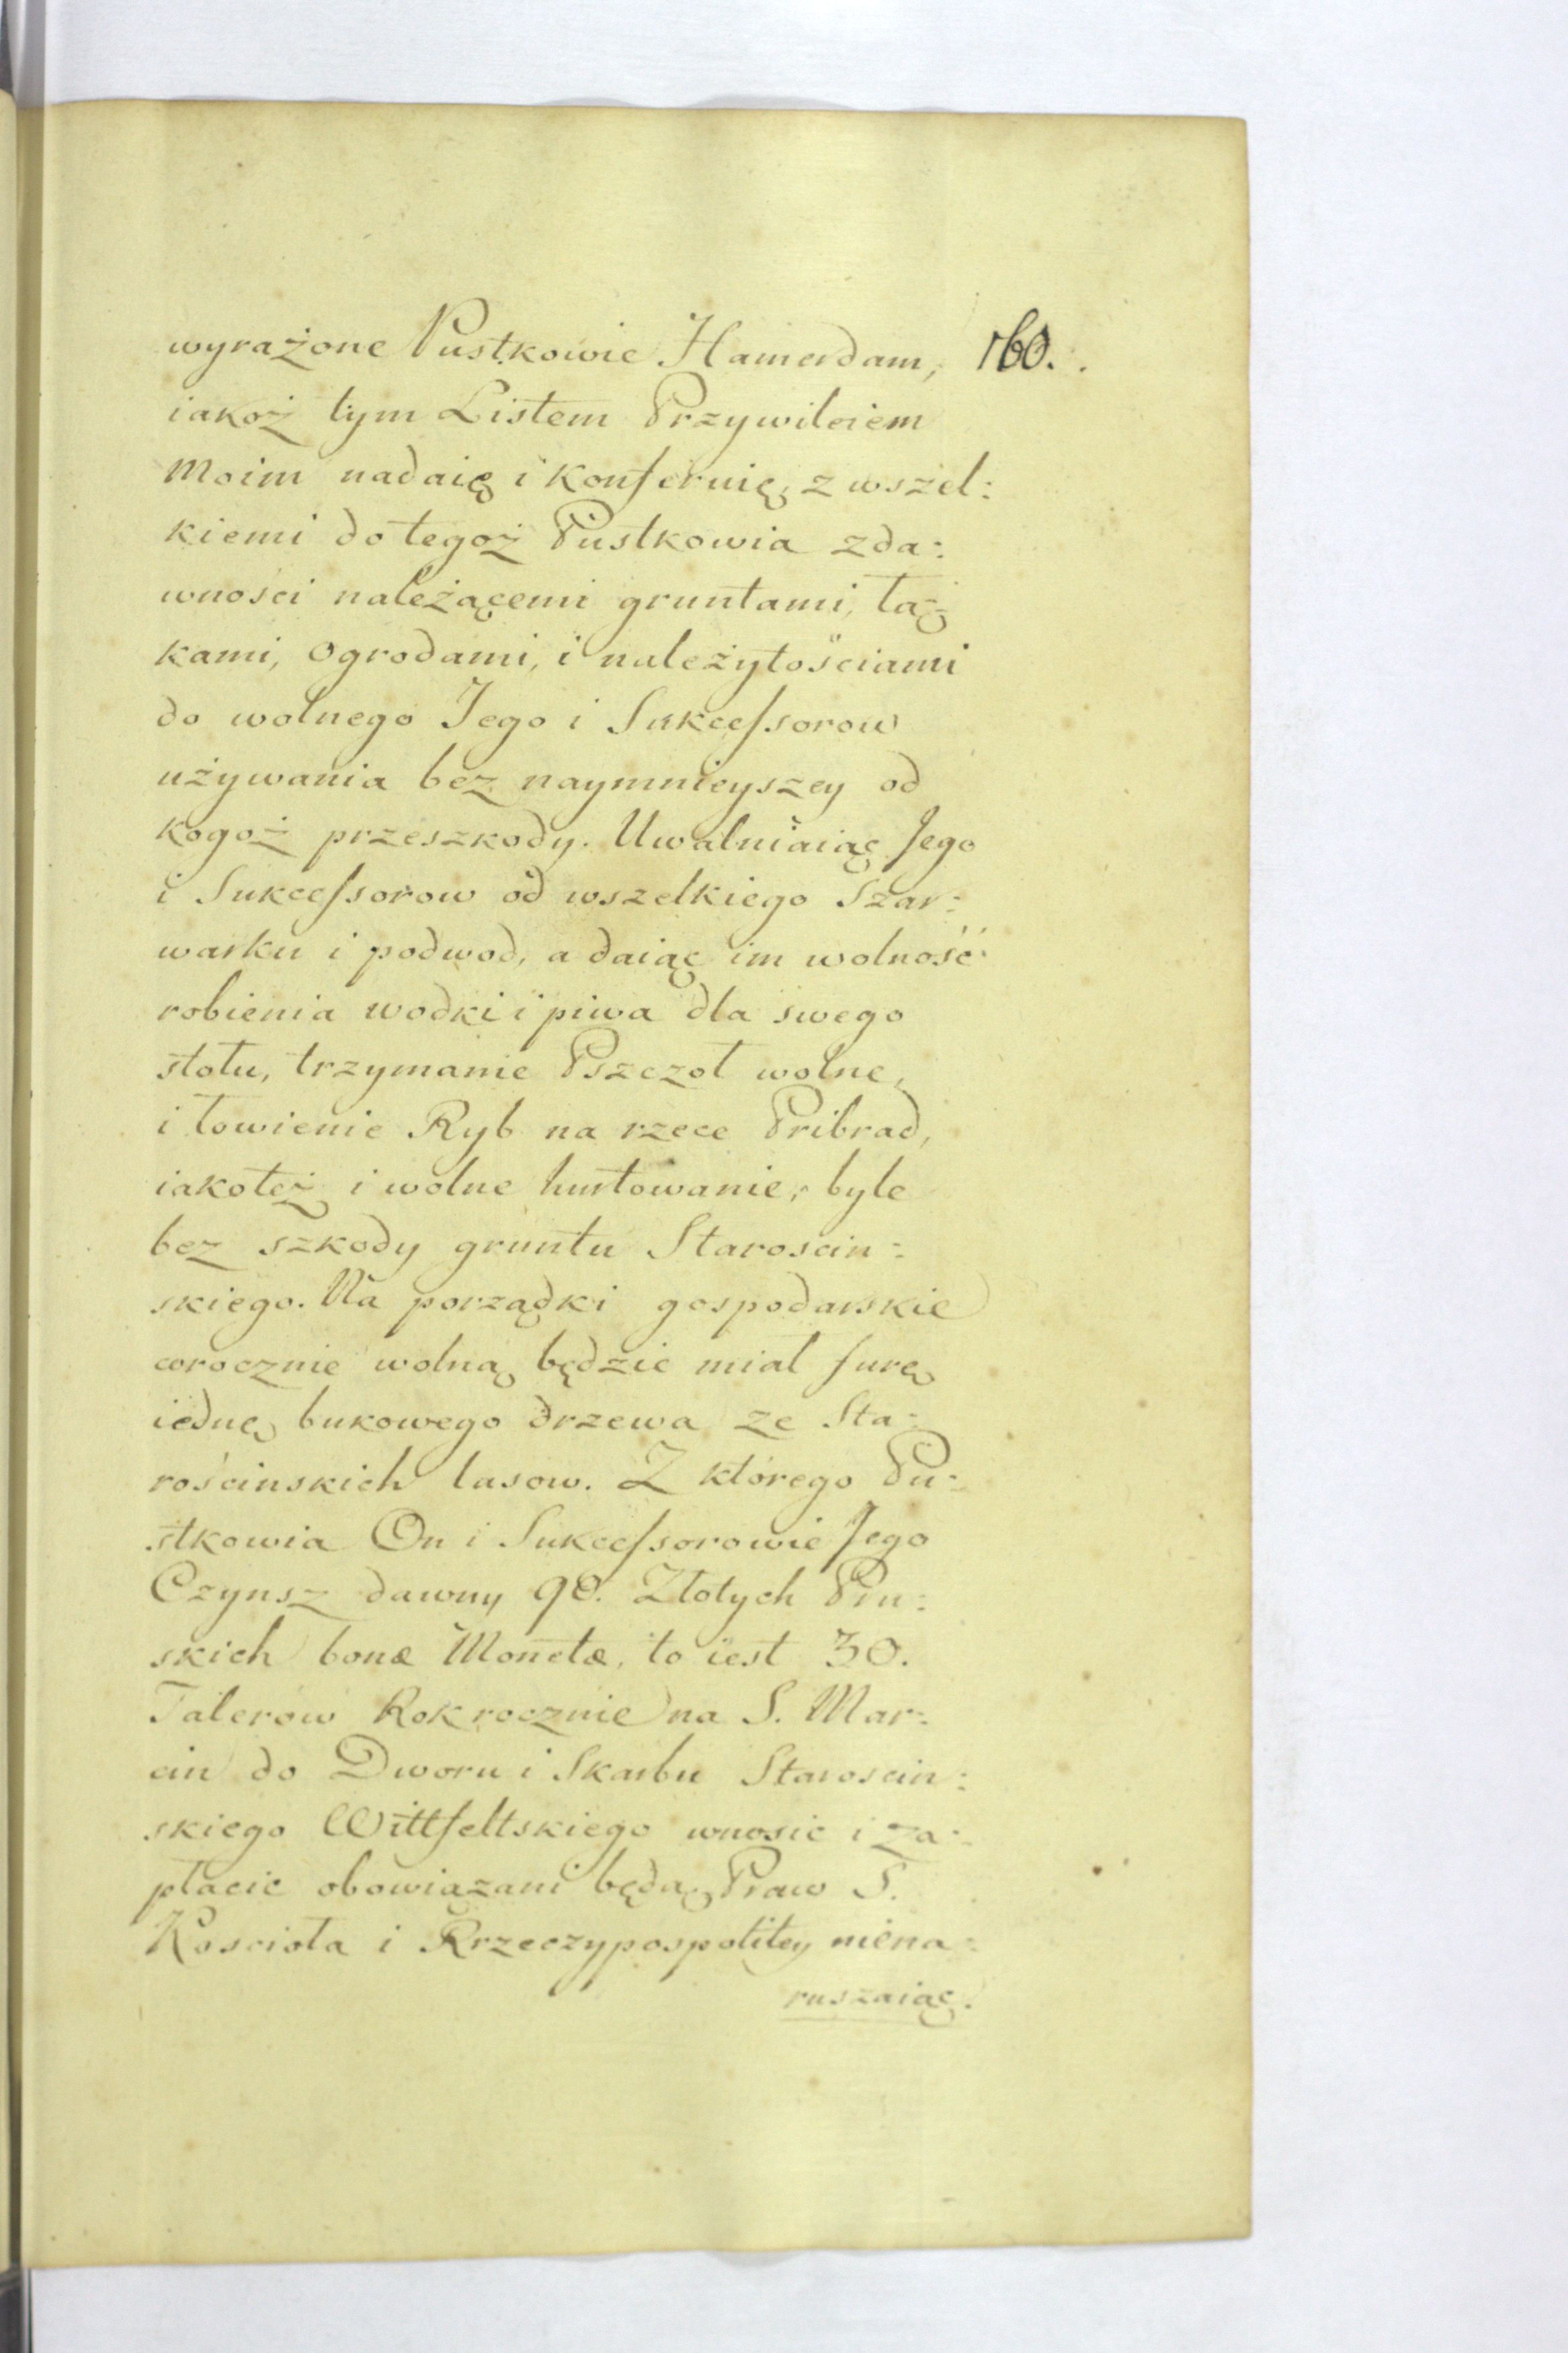 wyrażone Pustkowie Hamerdam, 160.
iakoż tym Listem Przywileiem
Moim nadaię i konferuię, z wszel:
kiemi do tegoż Pustkowia zda:
wności należącemi gruntami, łą:
kami, ogrodami, i należytościami
do wolnego Jego i Sukcessorow
używania bez naymnieyszey od
kogoż przeszkody. Uwalniaiąc Jego
i Sukcessorow od wszelkiego Szar:
warku i podwod, a daiąc im wolność
robienia wodki i piwa dla swego
stołu, trzymanie Pszczoł wolne,
i łowienie Ryb na rzece Pribrad,
iakoteż i wolne hurtowanie, byle
bez szkody gruntu Staroscin:
skiego. Na porządki gospodarskie
corocznie wolną będzie miał furę
iednę bukowego drzewa ze Sta:
rościnskich lasow. Z którego Pu:
stkowia On i Sukcessorowie Jego
Czynsz dawny 90. Złotych Pru:
skich bonæ Monetæ, to iest 30.
Talerow Rokrocznie na S. Mar:
cin do Dworu i Skarbu Staroscin:
skiego Wittfeltskiego wnosic i za:
płacic obowiązani będą, Praw S.
Koscioła i Rzeczypospolitey niena:
ruszaiąc.